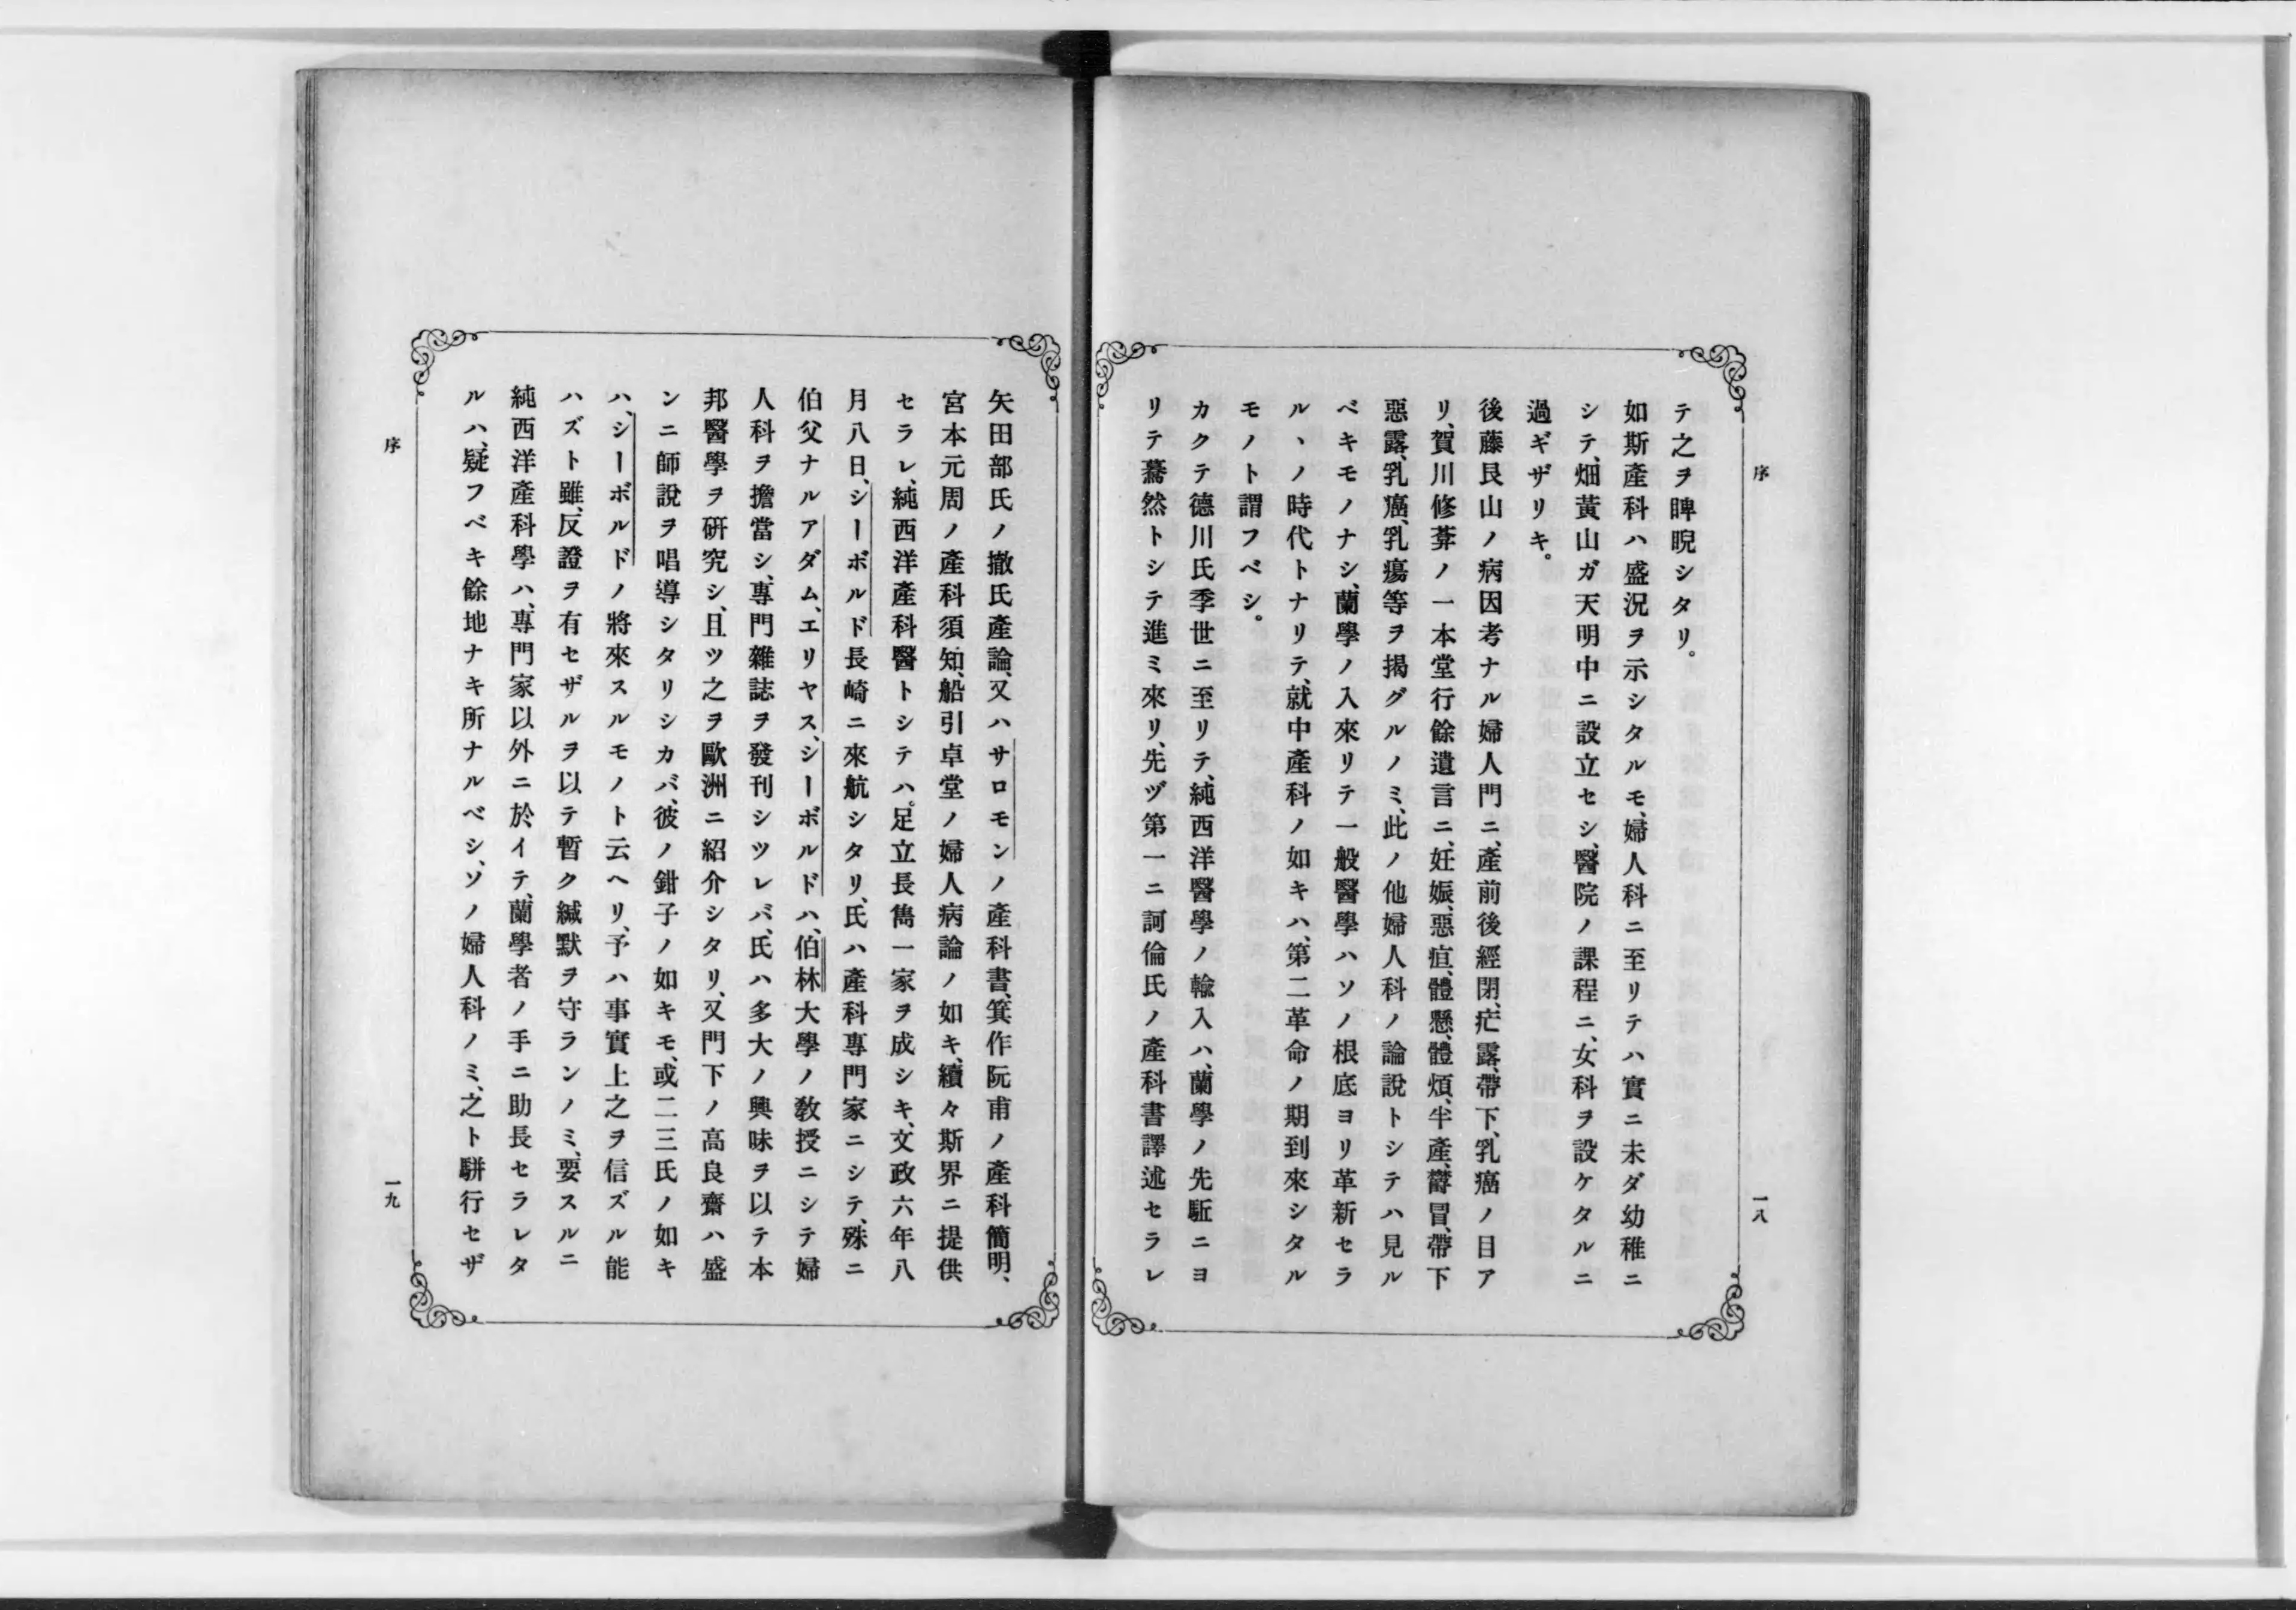 序
一八
テ之ヲ睥睨シタリ。
如斯產科ハ盛況ヲ示シタルモ、婦人科ニ至リテハ實ニ未ダ幼稚ニ
シテ、畑黃山ガ天明中ニ設立セシ、醫院ノ課程ニ、女科ヲ設ケタルニ
過ギザリキ。
後藤艮山ノ病因考ナル婦人門ニ、產前後經閉、疟露、帶下、乳癌ノ目ア
リ、賀川修葊ノ一本堂行餘遺言ニ、妊娠、惡疽、體懸、體煩、半產、欝冒、帶下
惡露、乳癌、乳瘍等ヲ揭グルノミ、此ノ他婦人科ノ論說トシテハ見ル
ベキモノナシ、蘭學ノ入來リテ一般醫學ハソノ根底ヨリ革新セラ
ルヽノ時代トナリテ、就中產科ノ如キハ、第二革命ノ期到來シタル
モノト謂フベシ。
カクテ德川氏季世ニ至リテ、純西洋醫學ノ輸入ハ、蘭學ノ先駈ニヨ
リテ驀然トシテ進ミ來リ、先ヅ第一ニ訶倫氏ノ產科書譯述セラレ
矢田部氏ノ撒氏產論、又ハサロモンノ產科書、箕作阮甫ノ產科簡明、
宮本元周ノ產科須知、船引卓堂ノ婦人病論ノ如キ、續々斯界ニ提供
セラレ、純西洋產科醫トシテハ。足立長雋一家ヲ成シキ、文政六年八
月八日、シーボルド長崎ニ來航シタリ、氏ハ產科專門家ニシテ、殊ニ
伯父ナルアダム、エリヤス、シーボルドハ、伯林大學ノ敎授ニシテ婦
人科ヲ擔當シ、專門雜誌ヲ發刊シツレバ、氏ハ多大ノ興味ヲ以テ本
邦醫學ヲ研究シ、且ツ之ヲ歐洲ニ紹介シタリ、又門下ノ高良齋ハ盛
ンニ師說ヲ唱導シタリシカバ、彼ノ鉗子ノ如キモ、或二三氏ノ如キ
ハ、シーボルドノ將來スルモノト云ヘリ、予ハ事實上之ヲ信ズル能
ハズト雖、反證ヲ有セザルヲ以テ暫ク緘默ヲ守ランノミ、要スルニ
純西洋產科學ハ、專門家以外ニ於イテ、蘭學者ノ手ニ助長セラレタ
ルハ、疑フベキ餘地ナキ所ナルベシ、ソノ婦人科ノミ、之ト騈行セザ
序
一九